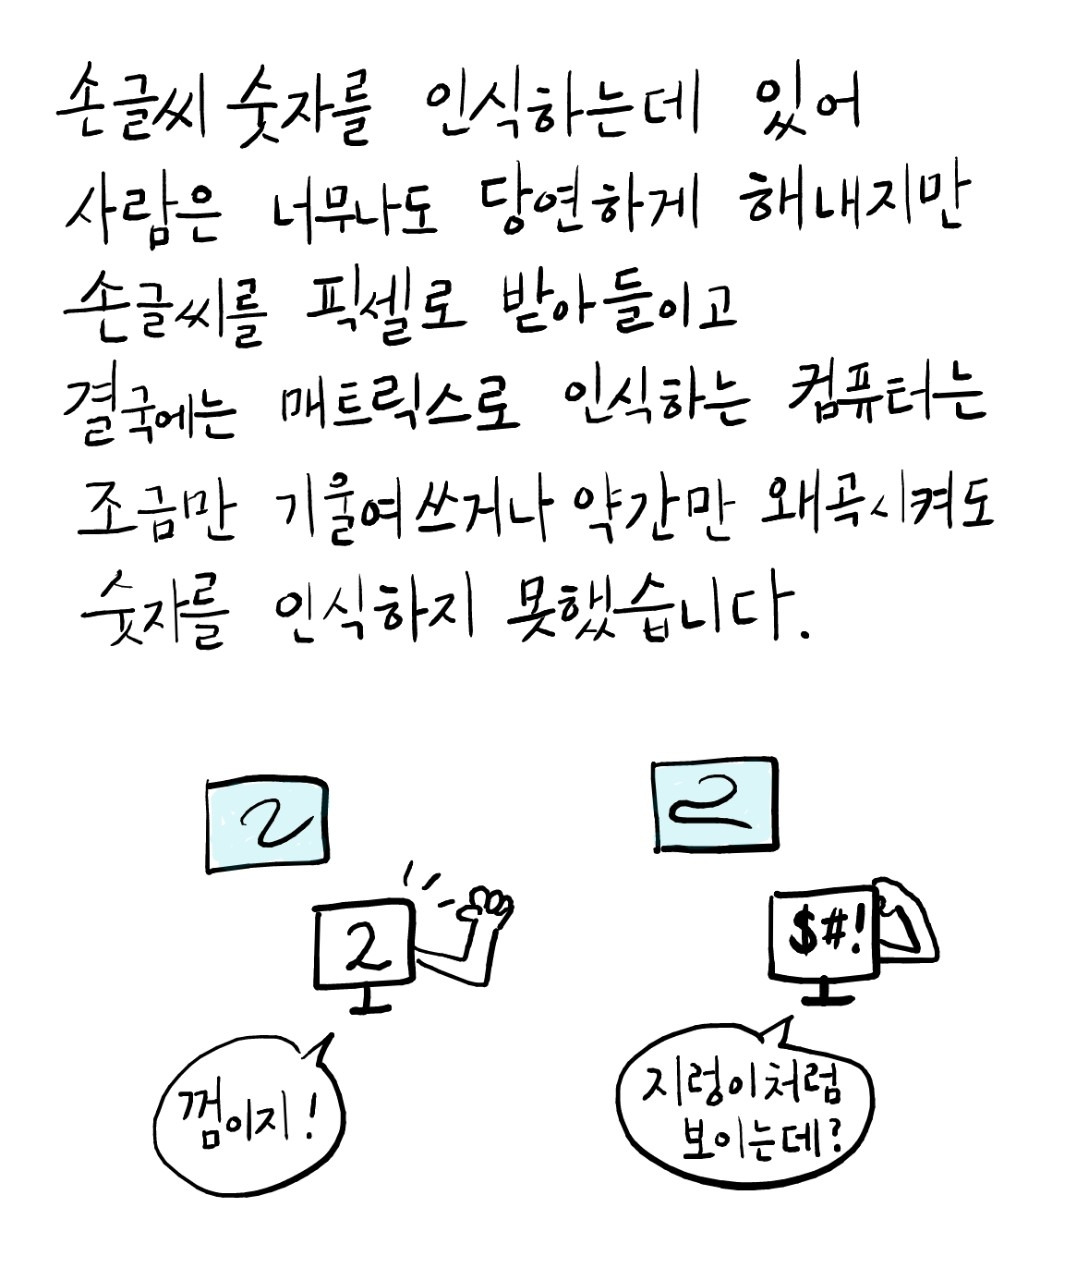 손글씨 숫자를 인식하는데 있어
사람은 너무나도 당연하게 해내지만
손글씨를 픽셀로 받아들이고
결국에는 매트릭스로 인식하는 컴퓨터는
조금만 기울여쓰거나 약간만 왜곡시켜도
숫자를 인식하지 못했습니다.
2
2
2
$#!
껌이지!
지렁이처럼
보이는데?